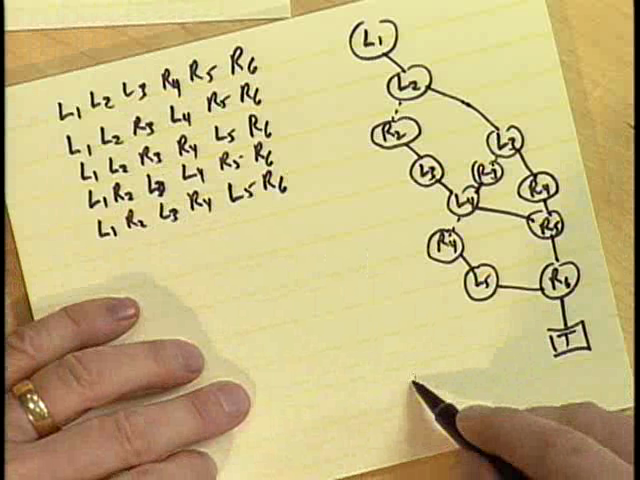 L1 L2 L3 R4 R5 R6
L1 L2 R3 L4 R5 R6
L1 L2 R3 R4 L5 R6
L1 R2 L3 L4 R5 R6
L1 R2 L3 R4 L5 R6
L1
L2
R2
L3
L3
R3
L4
R4
R5
R4
L5
R6
T